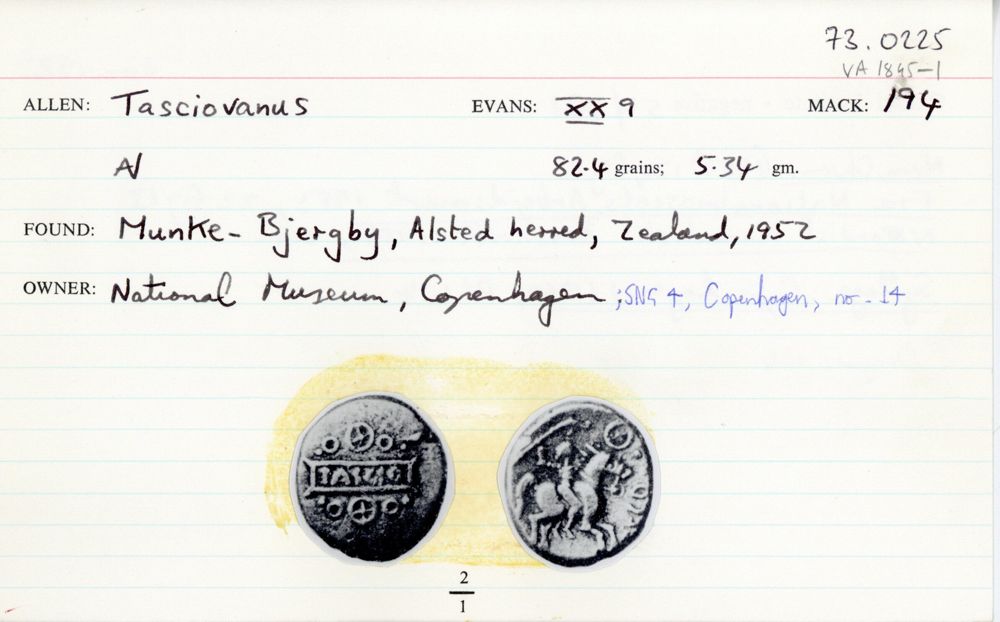 73.0225
VA 1845-1
ALLEN: Tasciovanus EVANS: XX 9 MACK: 194
AV 82.4 grains; 5.34 gm.
FOUND: Munke-Bjergby, Alsted herred, Zealand, 1952
OWNER: National Museum, Copenhagen ; SNG 4, Copenhagen, no. 14
TASCIO
2
1